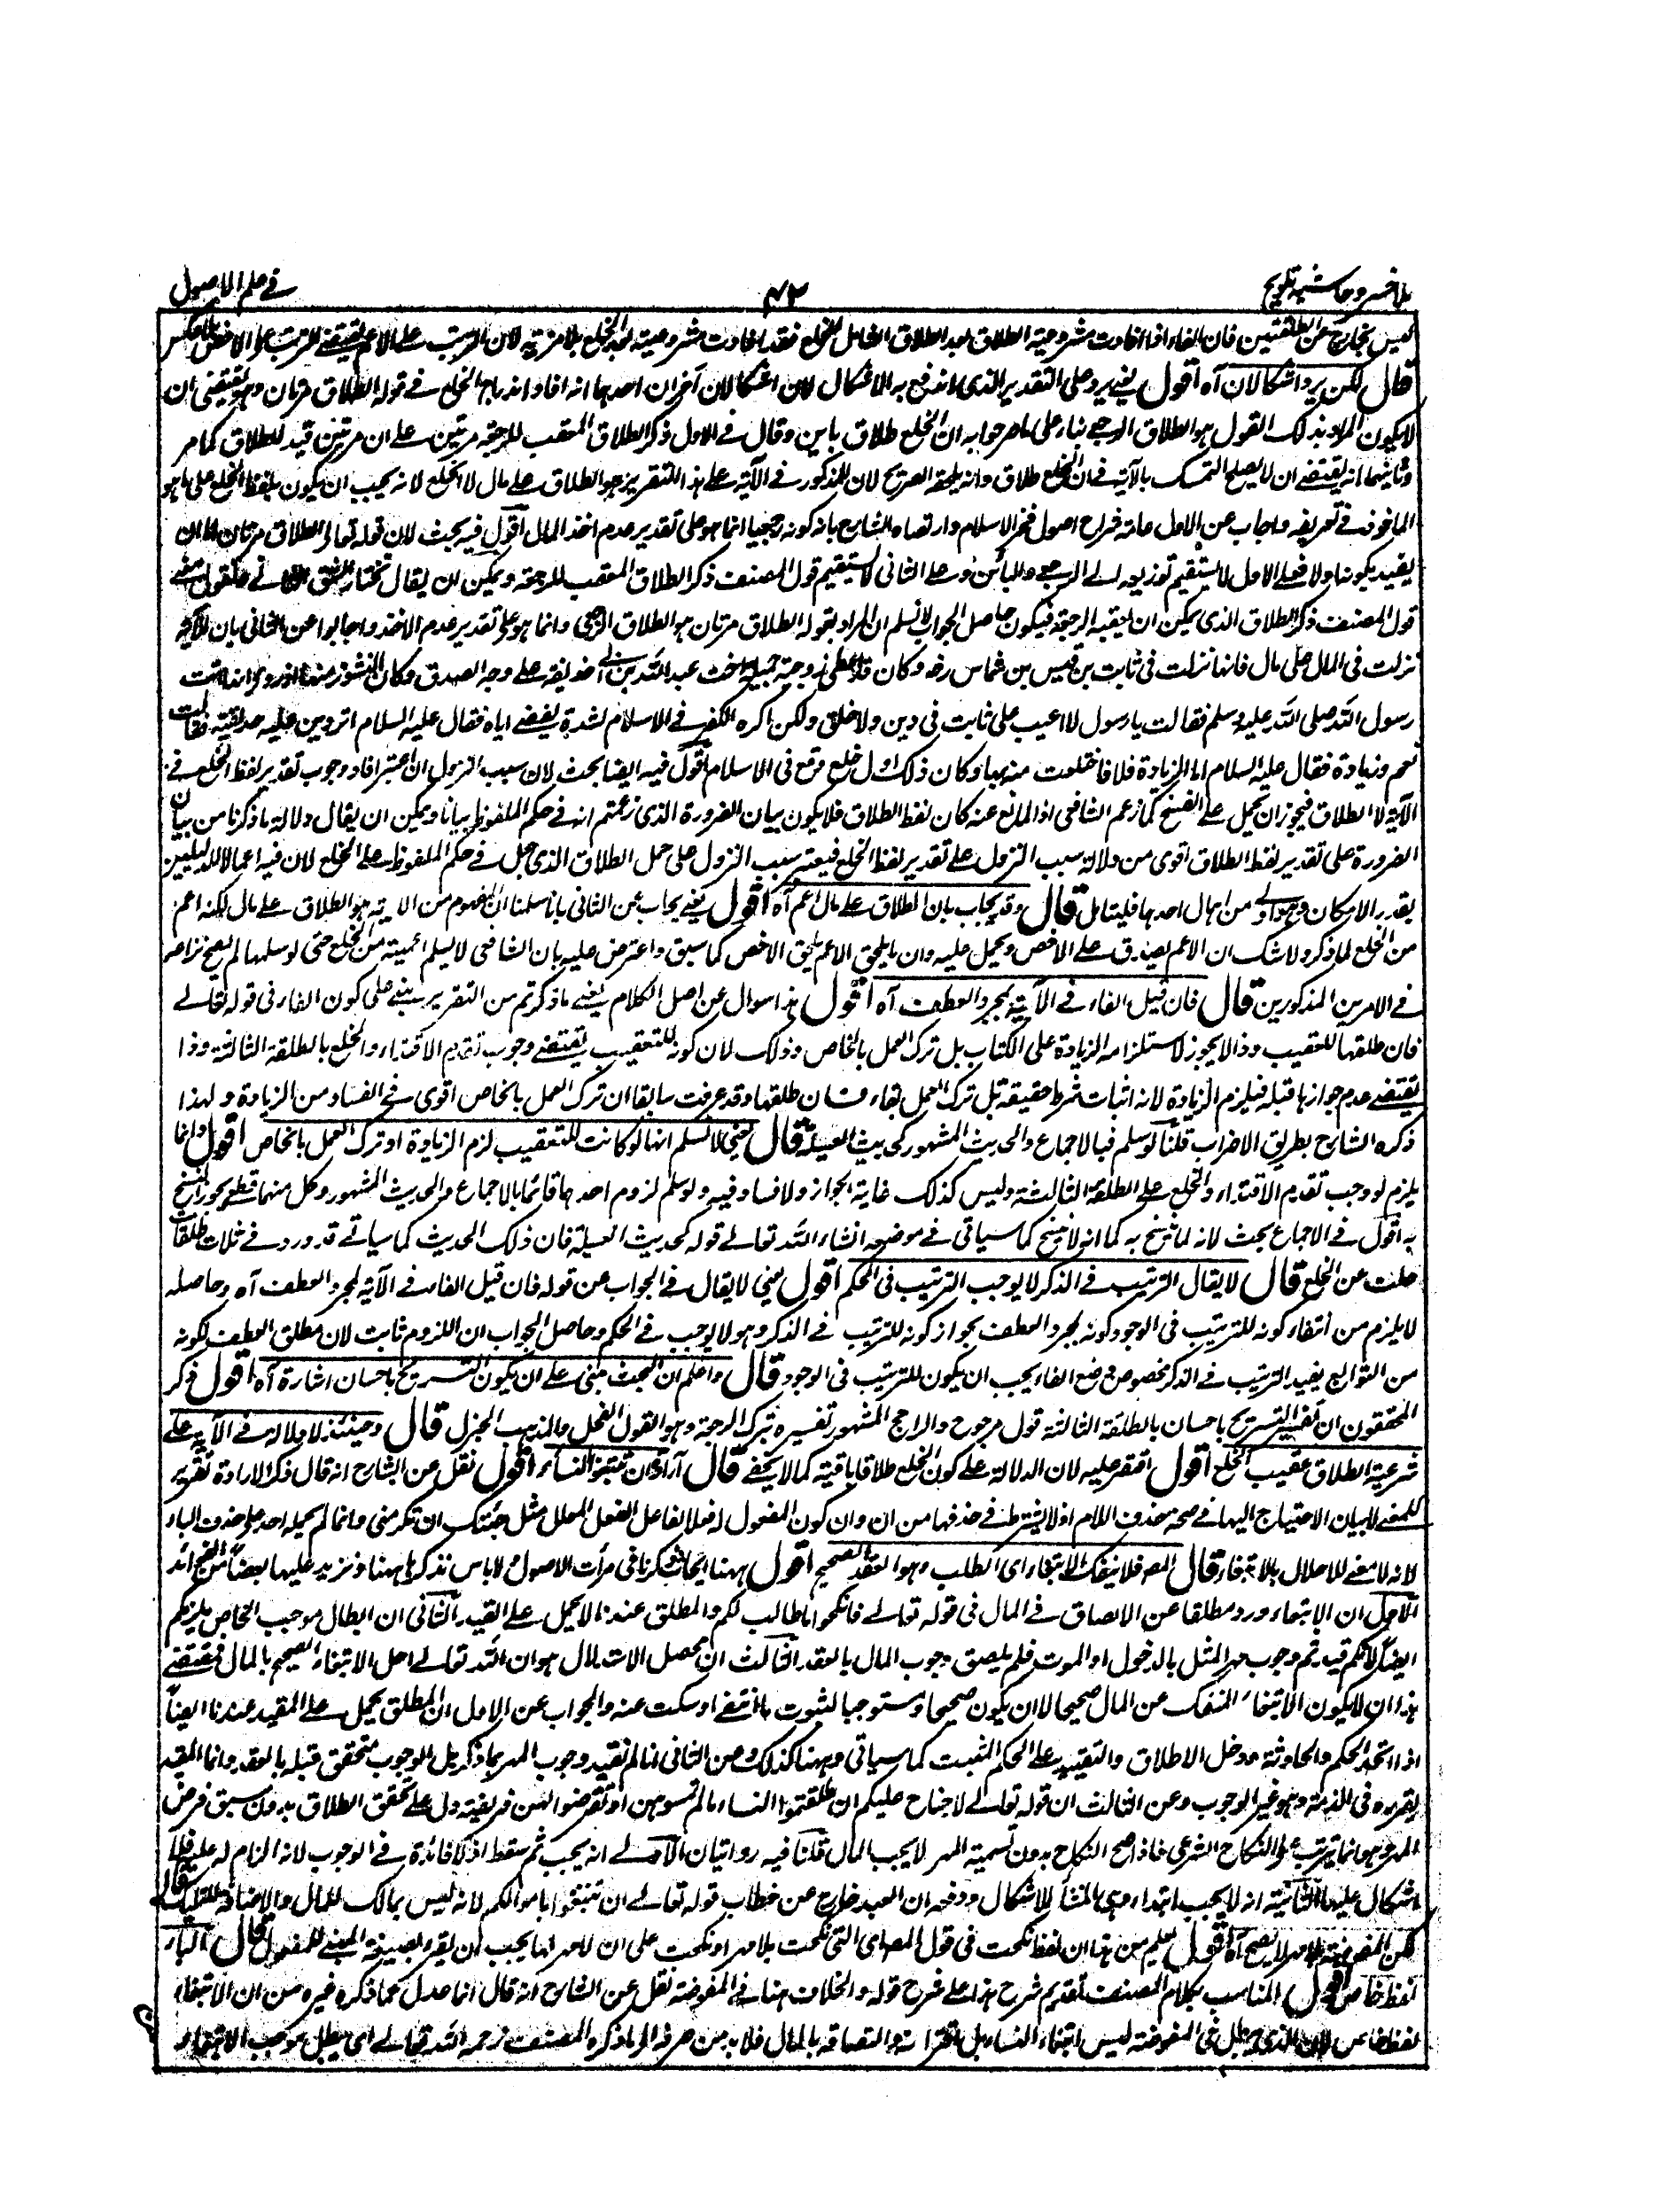 ملا خسرو حاشیه تلویح ۴۲ فی علم الاصول
لیس بخارج عن الطلقتین فان الفاء اذا افادت مشروعیة الطلاق بعد الطلاق الشامل للخلع فقد افادت مشروعیته بعد الخلع بلا مزیة لان الترتیب علی الاعم یقتضی الترتیب علی الاخص بلا عکس
قال لکن یرد اشکالان آه اقول یعنی یرد علی التقدیر الذی اندفع به الاشکال الاول اشکالان آخران احدهما انه افاد اندراج الخلع فی قوله الطلاق مرتان وهو یقتضی ان
لا یکون المراد بذلک القول هو الطلاق الرجعی بناء علی ما صرحوا به ان الخلع طلاق باین وقال فی الاول ذکر الطلاق المعقب للرجعة مرتین علی ان مرتین قید للطلاق کما مر
وثانیهما انه یقتضی ان لا یصلح التمسک بالآیة فی ان الخلع طلاق وانه یلحقه الصریح لان المذکور فی الآیة علی هذا التقریر هو الطلاق علی مال لا الخلع لانه یجب ان یکون بلفظ الخلع علی ما هو
الماخوذ فی تعریفه واجاب عن الاول عامة شراح اصول فخر الاسلام وارتضاه الشارح بانه کونه رجعیا انما هو علی تقدیر عدم اخذ المال اقول فیه بحث لان قوله تعالی الطلاق مرتان اما ان
یقید بکونها اولا فعلی الاول لا یستقیم توزیعه الی الرجعی والبائن وعلی الثانی لا یستقیم قول المصنف ذکر الطلاق المعقب للرجعة ویمکن ان یقال نختار الشق الثانی فنقول معنی
قول المصنف ذکر الطلاق الذی یمکن ان یعقبه الرجعة فیکون حاصل الجواب لا نسلم ان المراد بقوله الطلاق مرتان هو الطلاق الرجعی وانما هو علی تقدیر عدم الاخذ واجابوا عن الثانی بان الآیة
نزلت فی المال علی مال فانها نزلت فی ثابت بن قیس بن شماس رض وکان قد اعطی زوجته جمیلة اخت عبد الله بن ابی حدیقة علی وجه الصدق وکان النشوز منها اذ روی انها اتت
رسول الله صلی الله علیه وسلم فقالت یا رسول لا اعیب علی ثابت فی دین ولا خلق ولکن اکره الکفر فی الاسلام لشدة بغضی ایاه فقال علیه السلام اتردین علیه حدیقته فقالت
نعم وزیادة فقال علیه السلام اما الزیادة فلا فاختلعت منه بها وکان ذلک اول خلع وقع فی الاسلام اقول فیه ایضا بحث لان سبب النزول ان اعتبر افاد وجوب تقدیر لفظ الخلع فی
الآیة لا الطلاق فیجوز ان یحمل علی الفسخ کما زعم الشافعی اذ المانع عنه کان لفظ الطلاق فلا یکون بیان الضرورة الذی زعمتم انه فی حکم الملفوظ بیانا ویمکن ان یقال دلالة ما ذکرنا من بیان
الضرورة علی تقدیر لفظ الطلاق اقوی من دلالة سبب النزول علی تقدیر لفظ الخلع فیعتبر سبب النزول علی حمل الطلاق الذی جعل فی حکم الملفوظ علی الخلع لان فیه اعمالا للدلیلین
بقدر الامکان وهو اولی من اهمال احدهما فلیتامل قال وقد یجاب بان الطلاق علی مال اعم آه اقول یعنی یجاب عن الثانی بانا سلمنا ان المفهوم من الایة هو الطلاق علی مال لکنه اعم
من الخلع لما ذکر ولا شک ان الاعم یصدق علی الاخص ویحمل علیه وان ما یلحق الاعم یلحق الاخص کما سبق واعترض علیه بان الشافعی لا یسلم اعمیته من الخلع حتی لو سلمها لم یصح نزاعه
فی الامرین المذکورین قال فان قیل الفاء فی الآیة لمجرد العطف آه اقول هذا سوال عن اصل الکلام یعنی ما ذکرتم من التقریر یبتنی علی کون الفاء فی قوله تعالی
فان طلقها للتعقیب وذا لا یجوز لاستلزامه الزیادة علی الکتاب بل ترک العمل بالخاص وذلک لان کونه للتعقیب یقتضی وجوب تقدم الافتداء والخلع بالطلقة الثالثة وذا
یقتضی عدم جوازها قبله فیلزم الزیادة لانه اثبات شرط حقیقة بل ترک العمل بفاء فان طلقها وقد عرفت سابقا ان ترک العمل بالخاص اقوی فی الفساد من الزیادة ولهذا
ذکره الشارح بطریق الاضراب قلنا لو سلم فبالاجماع والحدیث المشهور کحدیث العسیلة قال یعنی لا نسلم انها لو کانت للتعقیب لزم الزیادة او ترک العمل بالخاص اقول وانما
یلزم لو وجب تقدیم الافتداء والخلع علی الطلقة الثالثة ولیس کذلک غایة الجواز ولا فساد فیه ولو سلم لزوم احدهما قائما بالاجماع والحدیث المشهور وکل منهما قطعی یجوز النسخ
به اقول فی الاجماع بحث لانه لا نسخ به کما انه لا ینسخ کما سیاتی فی موضعه انشاء الله تعالی قوله کحدیث العسیلة فان ذلک الحدیث کما سیاتی قد ورد فی ثلاث طلقات
خلت عن الخلع قال لا یقال الترتیب فی الذکر لا یوجب الترتیب فی الحکم اقول یعنی لا یقال فی الجواب عن قوله فان قیل الفاء فی الآیة لمجرد العطف آه وحاصله
لا یلزم من انتفاء کونه للترتیب فی الوجود کونه لمجرد العطف بجواز کونه للترتیب فی الذکر وهو لا یوجب فی الحکم وحاصل الجواب ان اللزوم ثابت لان مطلق العطف لکونه
من التوابع یفید الترتیب فی الذکر فخصوص وضع الفاء یجب ان یکون للترتیب فی الوجود قال واعلم ان البحث مبنی علی ان یکون التسریح باحسان اشارة آه اقول ذکر
المحققون ان تفسیر التسریح باحسان بالطلقة الثالثة قول مرجوح والراجح المشهور تفسیره بترک الرجعة وهو القول الفحل والمذهب الجزل قال وحینئذ لا دلالة فی الآیة علی
شرعیة الطلاق عقیب الخلع اقول اقتصر علیه لان الدلالة علی کون الخلع طلاقا باقیة کما لا یخفی قال ارادة ان تبتغوا النساء اقول نقل عن الشارح انه قال ذکر الارادة تقریر
للمعنی لا بیان الاحتیاج الیها فی صحة حذف اللام اذ لا یشترط فی حذفها من ان وان کون المفعول له فعلا لفاعل الفعل المعلل مثل جئتک ان تکرمنی وانما لم یحمله احد علی حذف الباء
لانه لا معنی للاحلال بالابتغاء قال المصر فلا ینفک الابتغاء ای الطلب وهو العقد الصحیح اقول ههنا ابحاث ذکرناها فی مرآت الاصول ولا باس نذکرها ههنا ونزید علیها بعضا من الفوائد
الاول ان الابتغاء ورد مطلقا عن الالصاق فی المال فی قوله تعالی فانکحوا ما طاب لکم والمطلق عندنا لا یحمل علی القید الثانی ان ابطال موجب الخاص یلزمکم
ایضا لانکم قیدتم وجوب مهر المثل بالدخول او الموت فلم یلصق وجوب المال بالعقد الثالث ان محصل الاستدلال هو ان الله تعالی احل الابتغاء الصحیح بالمال فمقتضی
هذا ان لا یکون الابتغاء المنفک عن المال صحیحا لا ان یکون صحیحا ومستوجبا لثبوت ما انتفی او سکت عنه والجواب عن الاول ان المطلق یحمل علی المقید عندنا ایضا
اذا اتحد الحکم والحادثة ودخل الاطلاق والتقیید علی الحکم المثبت کما سیاتی وههنا کذلک وعن الثانی انا لم نقید وجوب المهر بما ذکر بل الوجوب متحقق قبله بالعقد وانما المقید
تقرره فی الذمة وهو غیر الوجوب وعن الثالث ان قوله تعالی لا جناح علیکم ان طلقتموا النساء مالم تمسوهن او تفرضوا لهن فریضة دل علی تحقق الطلاق بدون سبق فرض
المهر وهو انما یترتب علی النکاح الشرعی فاذا صح النکاح بدون تسمیة المهر لا یجب المال قلنا فیه روایتان الاولی انه یجب ثم یسقط اذ لا فائدة فی الوجوب لانه الزام له علیه فلا
اشکال علیها الثانیة انه لا یجب ابتداء وهی المنشأ للاشکال ودفعه ان العبد خارج عن خطاب قوله تعالی ان تبتغوا باموالکم لانه لیس بمالک للمال والاضافة للتملیک قال
لکن المفوضة بلا مهر لا یصح آه اقول یعلم من هنا ان لفظ نکحت فی قول المص ای التی نکحت بلا مهر او نکحت علی ان لا مهر لها یجب ان یقرء بصیغة المبنی للمفعول قال الباء
لفظ خاص اقول المناسب بکلام المصنف تقدیم شرح هذا علی شرح قوله والخلاف ههنا فی المفوضة نقل عن الشارح انه قال انما عدل عما ذکره غیره من ان الابتغاء
لفظ خاص لان الذی یبطل فی المفوضة لیس ابتغاء النساء بل اقترانه والتصاقه بالمال فلا بد من صرفه الی ما ذکره المصنف رحمه الله تعالی ای یبطل موجب الابتغاء